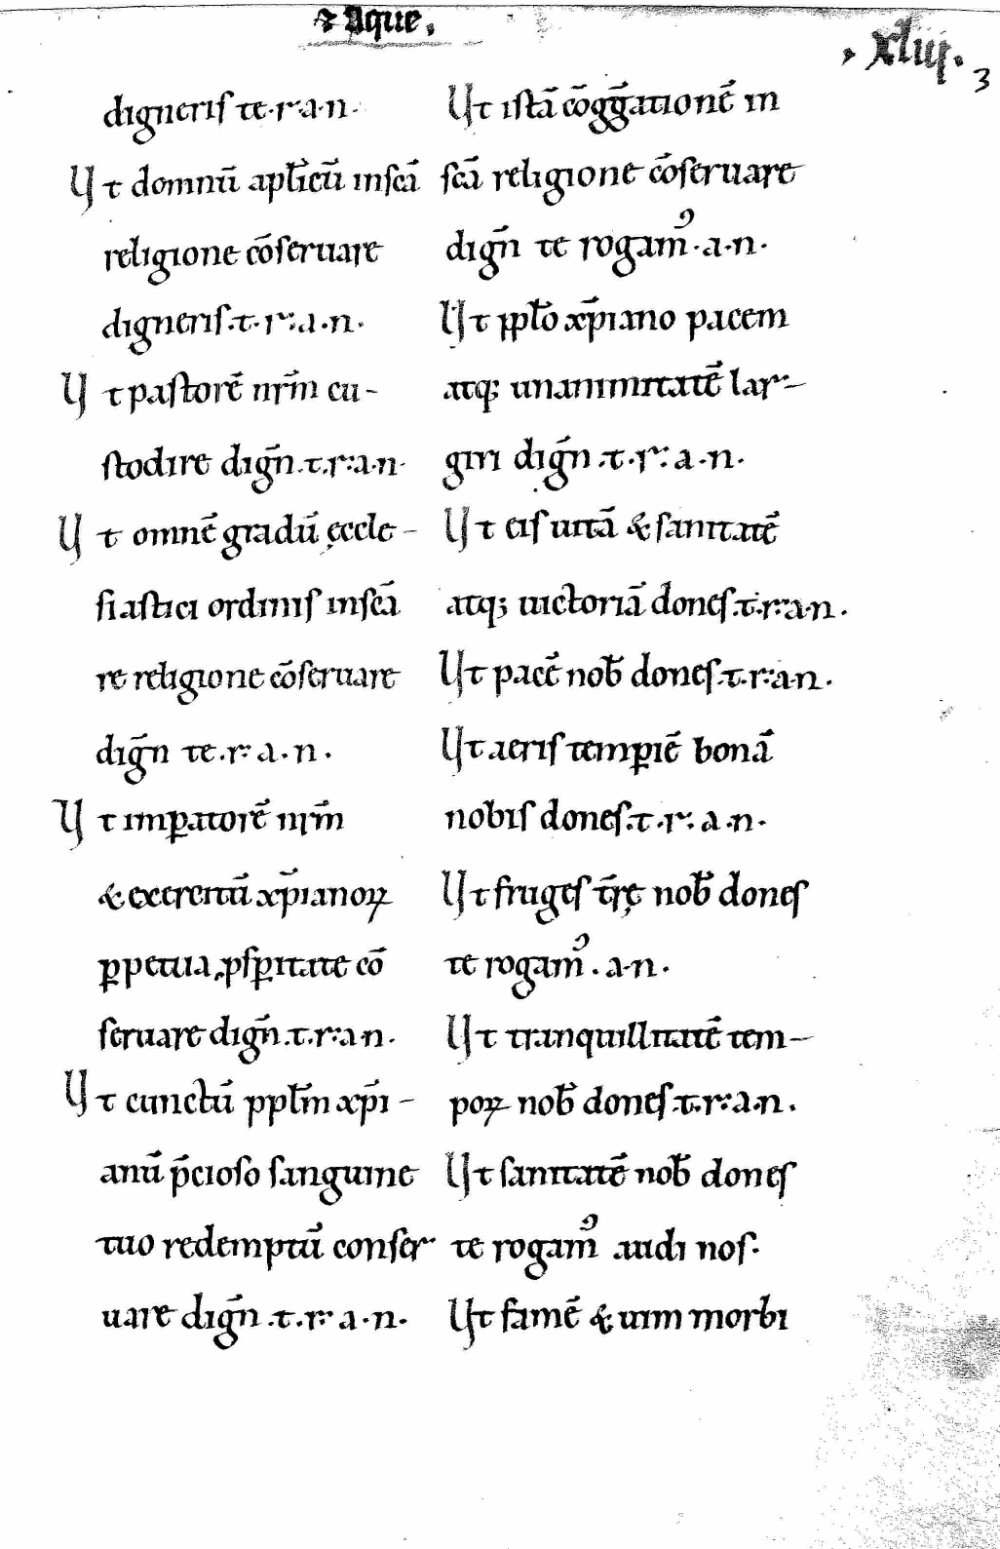 ⁊ Aque.
.xliij.
3
digneris te·r·a·n·
Ut domnū apl̄icū insc̄ā
religione cōseruare
digneris.t.r.a.n.
Ut pastorē nr̄m cu-
stodire dign̄.t.r.a.n.
Ut omnē gradū ęccle-
siastici ordinis insc̄ā
re religione cōseruare
dign̄ te.r.a.n.
Ut imꝑatorē nr̄m
& exercitū xp̄ianoꝝ
ꝑpetua ꝓsꝑitate cō
seruare dign̄.t.r.a.n.
Ut cunctū ppl̄m xp̄i-
anū p̄cioso sanguine
tuo redemptū conser
uare dign̄.t.r.a.n.
Ut istā cōgḡationē in
sc̄ā religione cōseruare
dign̄ te rogamꝰ.a.n.
Ut ppl̄o xp̄iano pacem
atq; unanimitatē lar-
giri dign̄.t.r.a.n.
Ut eis uitā & sanitatē
atq; uictoriā dones.t.r.a.n.
Ut pacē nob̄ dones.t.r.a.n.
Ut aeris temꝑiē bonā
nobis dones.t.r.a.n.
Ut fruges t̄rę nob̄ dones
te rogamꝰ.a.n.
Ut tranquillitatē tem-
poꝝ nob̄ dones.t.r.a.n.
Ut sanitatē nob̄ dones
te rogamꝰ audi nos.
Ut famē & uim morbi